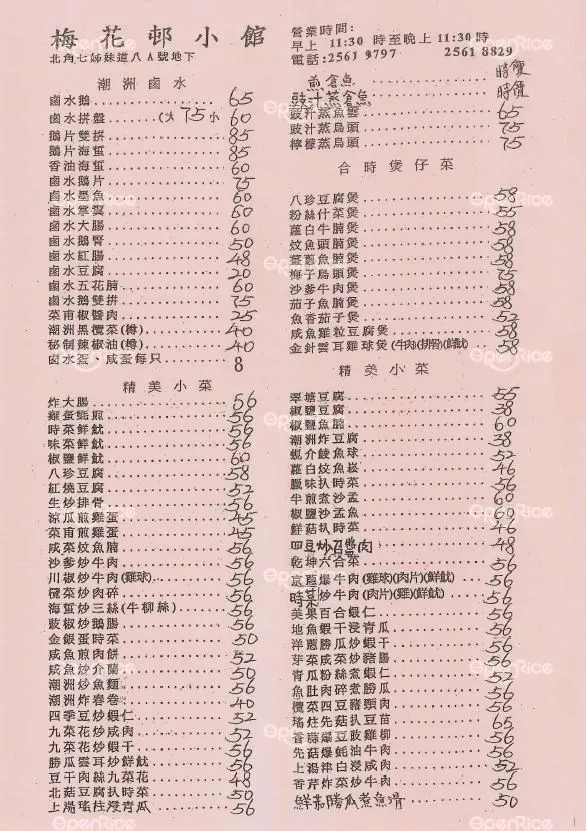 梅花邨小館
北角七姊妹道八A號地下
潮洲鹵水
鹵水鵝 65
鹵水拼盤 (大75小 60
鵝片雙拼 85
鵝片海蜇 85
香油海蜇 60
鹵水鵝片 75
鹵水墨魚 60
鹵水掌翼 60
鹵水大腸 60
鹵水鵝腎 50
鹵水紅腸 48
鹵水豆腐 20
鹵水五花腩 60
鹵水鵝雙拼 75
菜甫椒醬肉 25
潮洲黑欖菜(樽) 40
秘制辣椒油(樽) 40
鹵水蛋．咸蛋每只 8
精美小菜
炸大腸 56
56
時菜鮮魷 56
味菜鮮魷 56
椒鹽鮮魷 60
八珍豆腐 58
紅燒豆腐 52
生炒排骨 56
涼瓜煎雞蛋 45
菜甫煎雞蛋 45
咸菜炆魚腩 56
沙爹炒牛肉 56
川椒炒牛肉(雞球) 56
欖菜炒肉碎 56
海蜇炒三絲(牛柳絲) 56
豉椒炒鵝腸 56
金銀蛋時菜 50
咸魚煎肉餅 52
咸魚炒介蘭 50
潮洲炒魚麵 56
潮洲炸春卷 40
四季豆炒蝦仁 52
九菜花炒咸肉 52
九菜花炒蝦干 56
勝瓜雲耳炒鮮魷 56
豆干肉絲九菜花 48
北菇豆腐扒時菜 50
上湯瑤柱浸青瓜 56
營業時間：
早上 11:30 時至晚上 11:30 時
電話：2561 9797 2561 8829
煎倉魚 時價
豉汁蒸倉魚 時價
豉汁蒸魚雲 65
豉汁蒸烏頭 75
檸檬蒸烏頭 75
合時煲仔菜
八珍豆腐煲 58
粉絲什菜煲 55
蘿白牛腩煲 58
炆魚頭腩煲 58
薑蔥魚腩煲 58
梅子烏頭煲 75
沙爹牛肉煲 58
茄子魚腩煲 58
魚香茄子煲 52
咸魚雞粒豆腐煲 58
金針雲耳雞球煲(牛肉)(排骨)(鮮魷) 58
精美小菜
翠塘豆腐 55
椒鹽豆腐 38
椒鹽魚腩 60
潮洲炸豆腐 38
蜆介鯪魚球 52
蘿白炆魚崧 46
臘味扒時菜 56
牛煎煮沙孟 60
椒鹽沙孟魚 60
鮮菇扒時菜 46
48
乾坤六合菜 56
京蔥爆牛肉(雞球)(肉片)(鮮魷) 56
時菜炒牛肉(肉片)(雞)(鮮魷) 56
美果百合蝦仁 59
地魚蝦干浸青瓜 56
洋蔥勝瓜炒蝦干 56
芽菜咸菜炒豬腸 56
青瓜粉絲煮蝦仁 52
魚肚肉碎煮勝瓜 56
欖菜四豆豬頸肉 56
瑤柱先菇扒豆苗 65
香蒜爆豆豉雞柳 56
先菇爆蚝油牛肉 56
上湯津白浸咸肉 52
香芹炸菜炒牛肉 56
鮮菇勝瓜煮魚滑 50
OpenRice